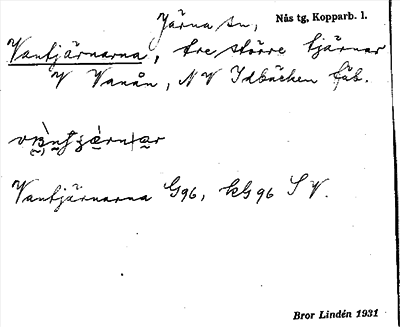 Järna sn, Nås tg, Kopparb. l.
Vantjärnarna, tre större tjärnar
V Vanån, NV Idbäcken fäb.
Vantjärnarna G96, kG96 SV.
Bror Lindén 1931